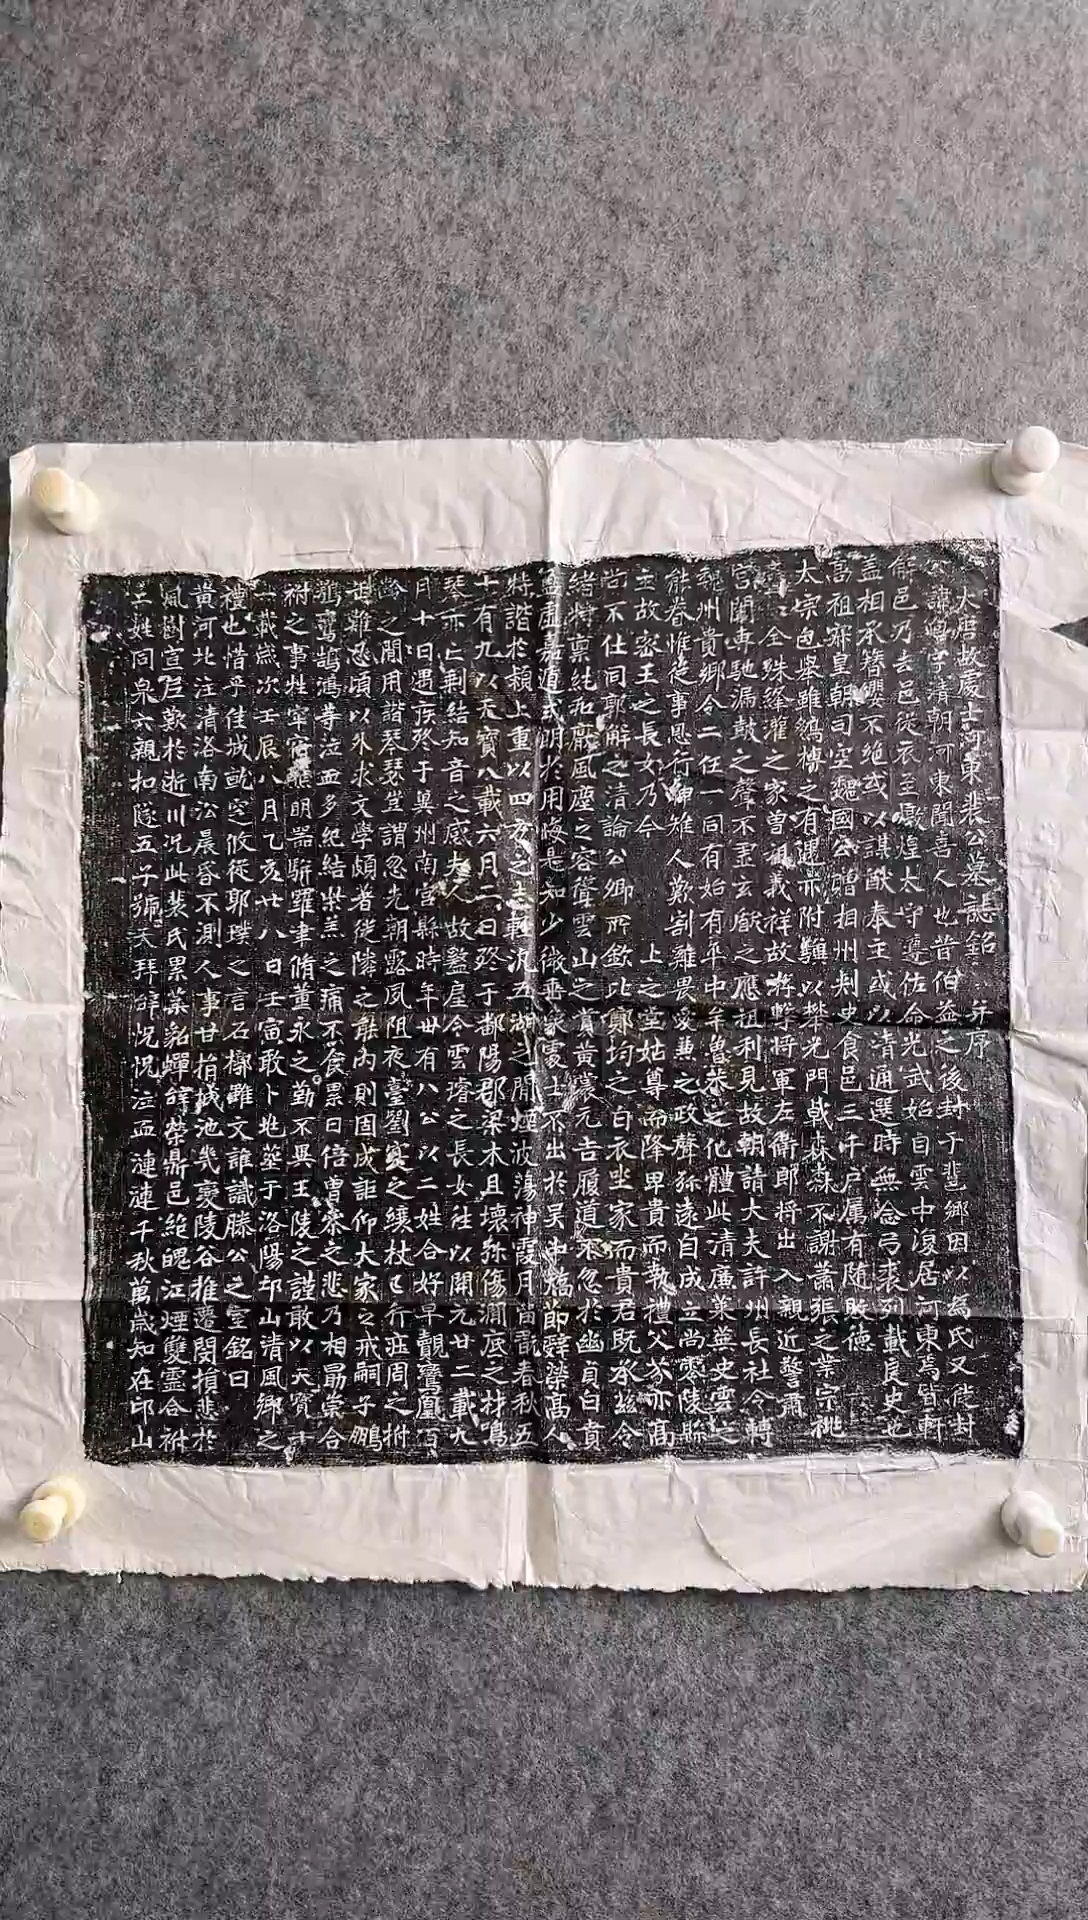 大唐故處士河東裴公墓誌銘 并序
公諱鴻字清朝河東聞喜人也昔伯益之後封于悲鄉因以為氏又徙封
解邑乃去邑從衣至燉煌太守遵佐命光武始自雲中復居河東焉皆軒
蓋相承簪纓不絕或以謀猷奉主或以清通選時無念弓裘列載良史也
高祖寂皇朝司空魏國公贈相州刺史食邑三千戶屬有隨敗德
太宗包舉雖鵷摶之有遇亦附驥以攀光門戟森森不謝蕭張之業宗祧
全殊絳灌之家曾祖義祥故游擊將軍左衛郎將出入親近警肅
宮闈專馳漏鼓之聲不盡玄猷之應祖利見故朝請大夫許州長社令轉
魏州貴鄉令二任一同有始有卒中牟魯恭之化體此清廉萊蕪史雲之
能眷惟從事思行神雉人歎割雞畏愛兼之政聲弥遠自成立尚零陵縣
主故密王之長女乃今 上之堂姑尊而降卑貴而執禮父 亦高
尚不仕同郭解之清論公卿所欽比鄭均之白衣坐家而貴君既承 令
緒特稟純和嚴風塵之容聳雲山之賞黃裳元吉履道不忽於幽貞白賁
 虛 道或明於用晦是知少微垂象處士不出於吳中 節辭榮高人
特諧於潁上重以四方之志 汎五湖之間煙波蕩神霞月留翫春秋五
十有九以天寶八載六月二日終于鄱陽郡梁木且壞弥傷澗底之材鳴
琴亦亡 結知音之感夫人故盩厔令雲 之長女往以開元廿二載九
月十日遇疾終于冀州南宮縣時年卌有八公以二姓合好早覯鸞凰百
齡之間用諧琴瑟豈謂忽先朝露夙阻夜臺劉寔之 杖 莊周之拊
 難忍頃以外求文學頗著從隣之能內則固成詎仰大家之戒嗣子鵬
鶱鸞鵠鴻等泣血多紀結 之痛不食累日倍曾參之悲乃相勗崇合
祔之事牲牢宿 明器駢羅聿脩董永之勤不異王陵之謹敢以天寶十
一載歲次壬辰八月乙亥廿八日壬寅敢卜兆塋于洛陽邙山清風鄉之
禮也惜乎佳城既窆攸從郭璞之言石槨雖文誰識滕公之室銘曰
黃河北注清洛南 晨昏不測人事甘 城池幾變陵谷推遷閔損悲於
風樹宣尼歎於逝川況此裴氏累葉貂蟬辭榮鼎邑 魄江煙雙靈合祔
二姓同泉六親扣隧五子號天拜辭怳怳泣血漣漣千秋萬歲知在邙山